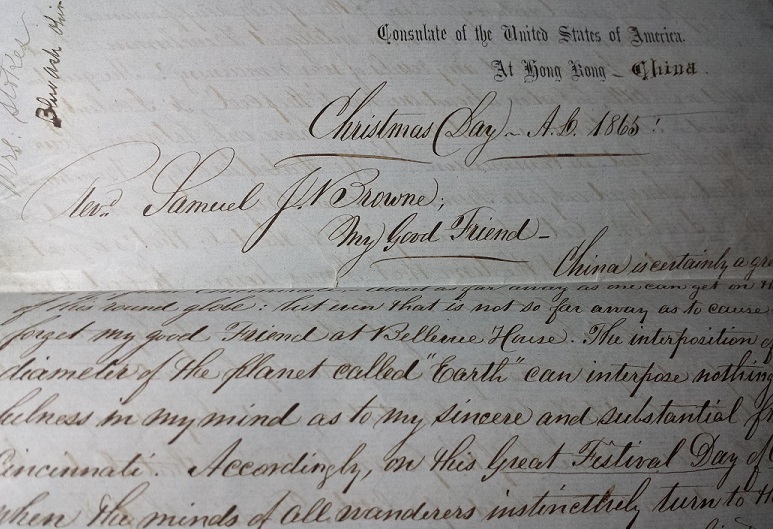 Mrs. Stokes
Consulate of the United States of America.
At Hong Kong – China.
Christmas Day – A.D. 1865!
Revd. Samuel J. Browne;
My Good Friend –
China is certainly a
about as far away as one can get on
of this round globe: but even that is not so far away as to cause
forget my good Friend at Bellevue House. The interposition of
diameter of the planet called "Earth" can interpose nothing
fulness in my mind as to my sincere and substantial
Cincinnati. Accordingly, on this Great Festival Day of
when the minds of all wanderers instinctively turn to